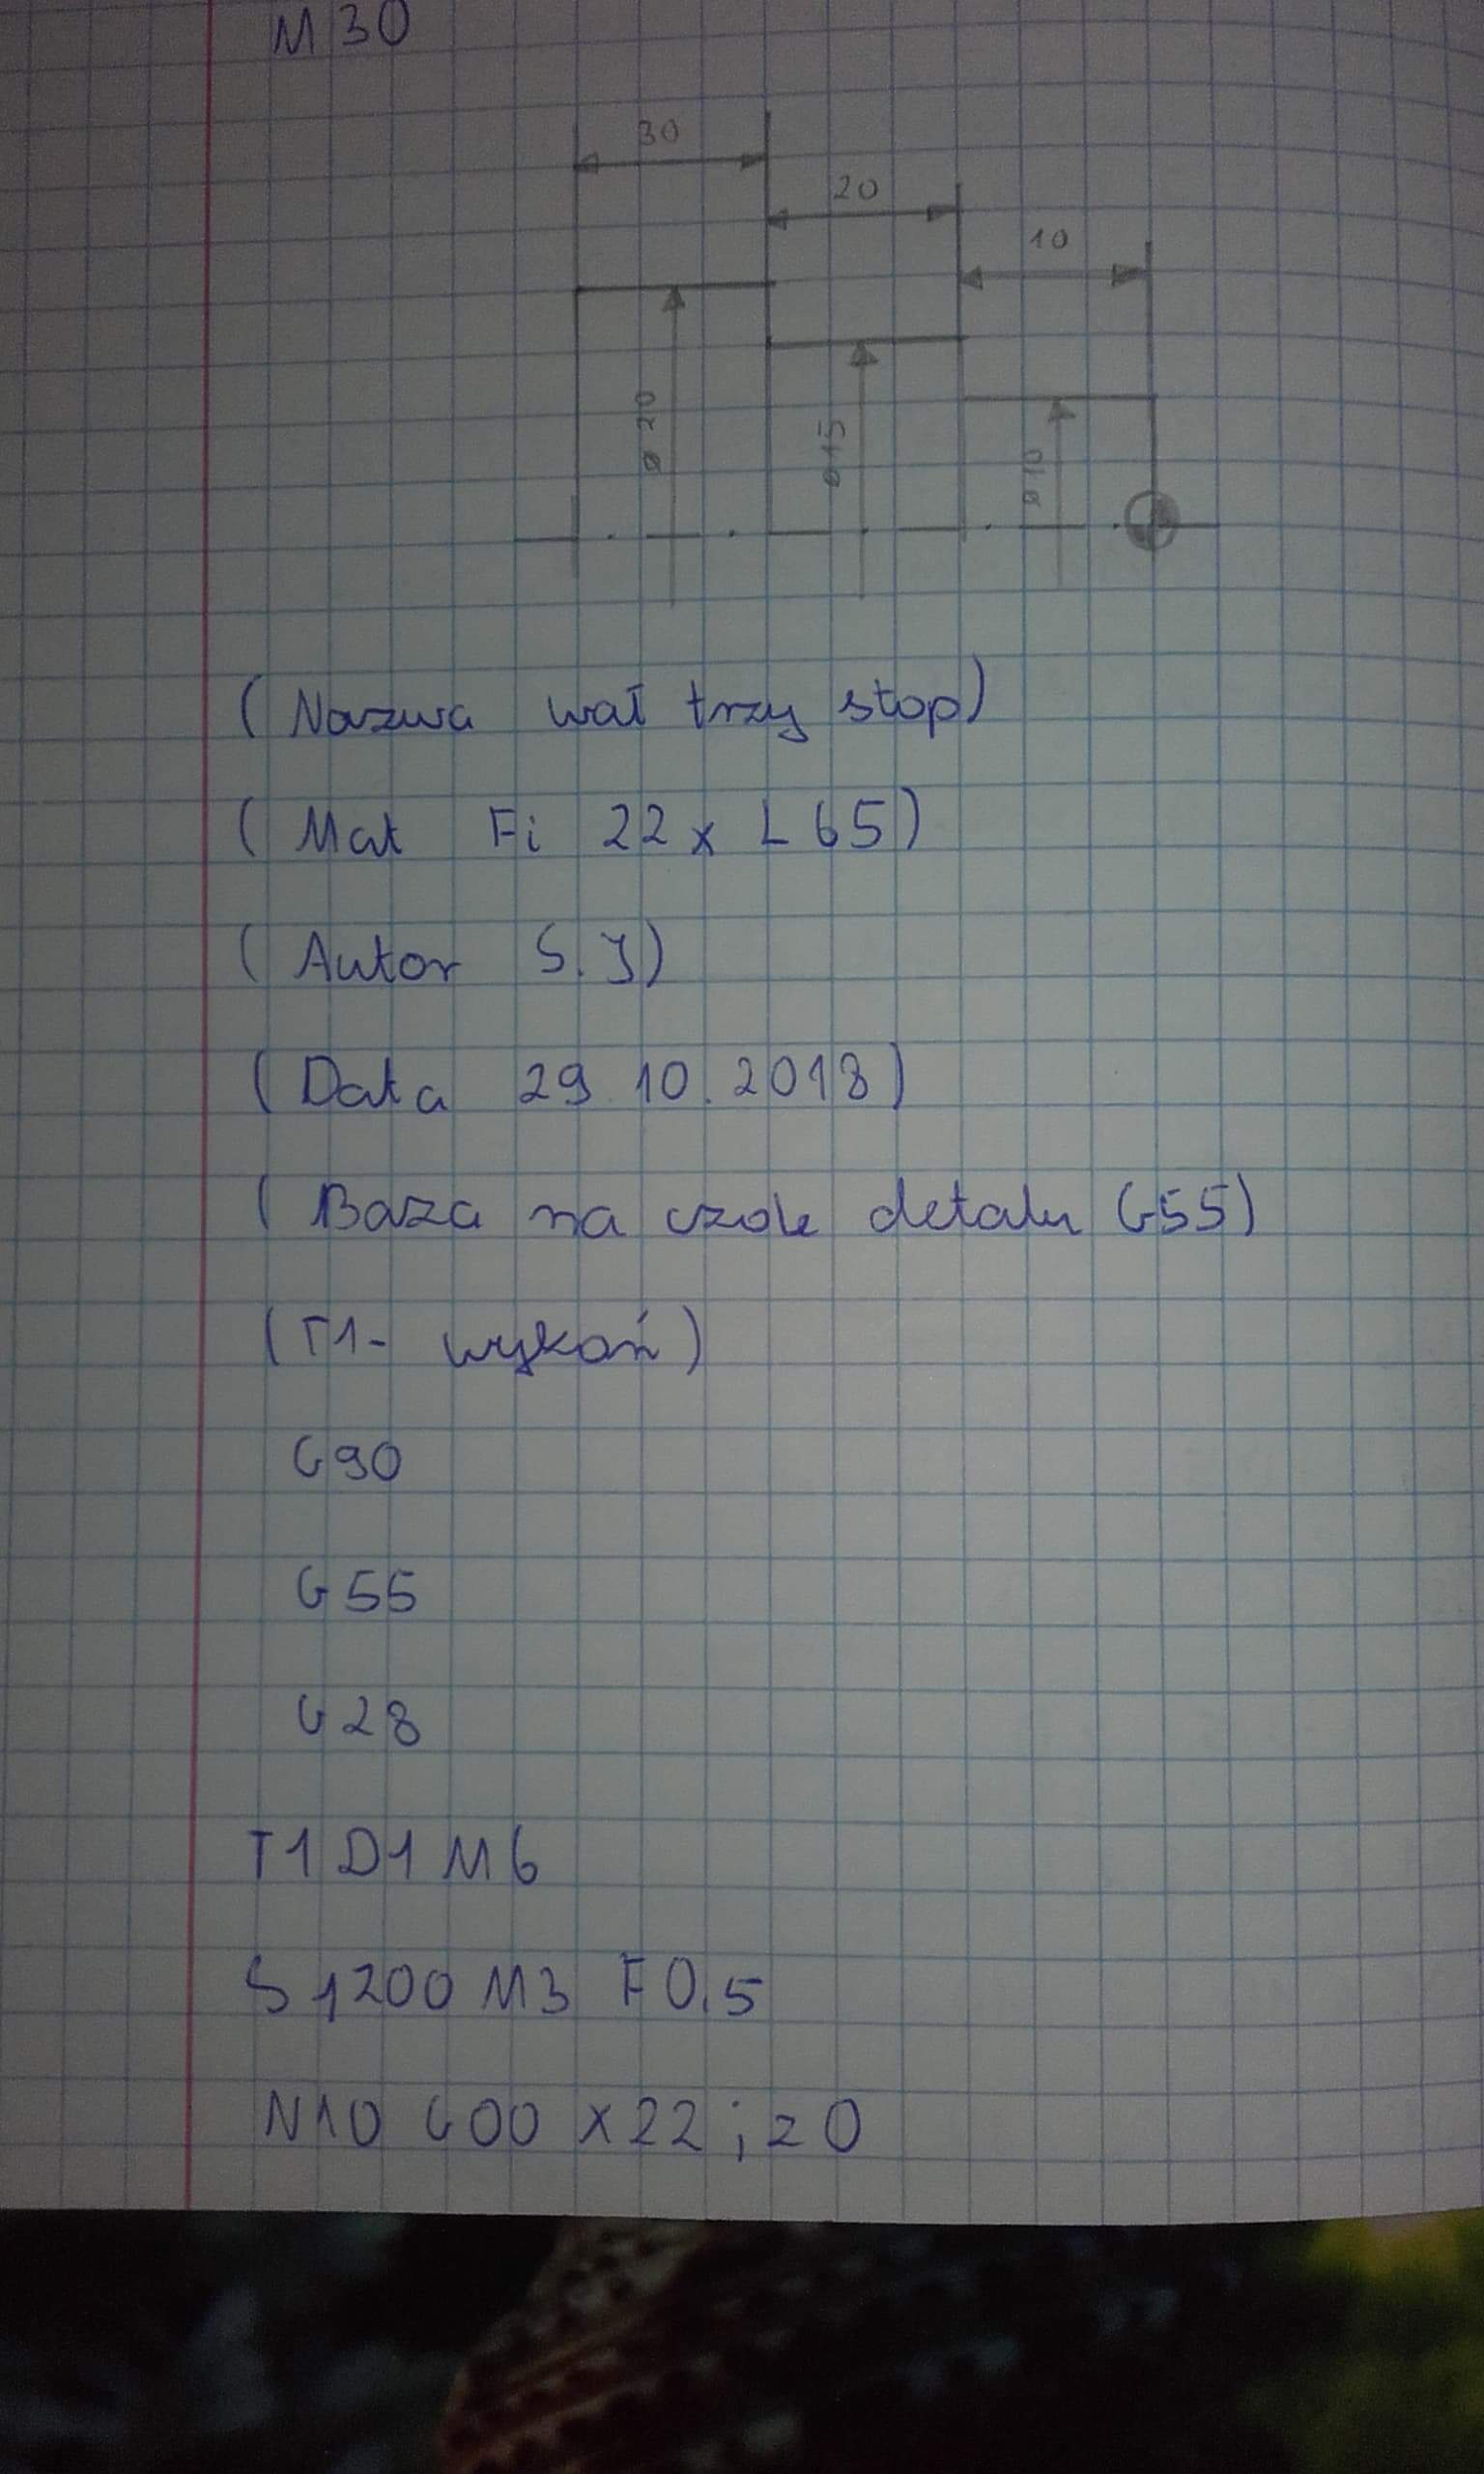 M30
30
20
10
ø 20
ø 15
ø 10
(Nazwa wał trzy stop)
(Mat Fi 22 x L 65)
(Autor S.J)
(Data 29.10.2018)
(Baza na czole detalu G55)
(T1- wykań)
G90
G55
G28
T1 D1 M6
S1200 M3 F0.5
N10 G00 x22 ; z0